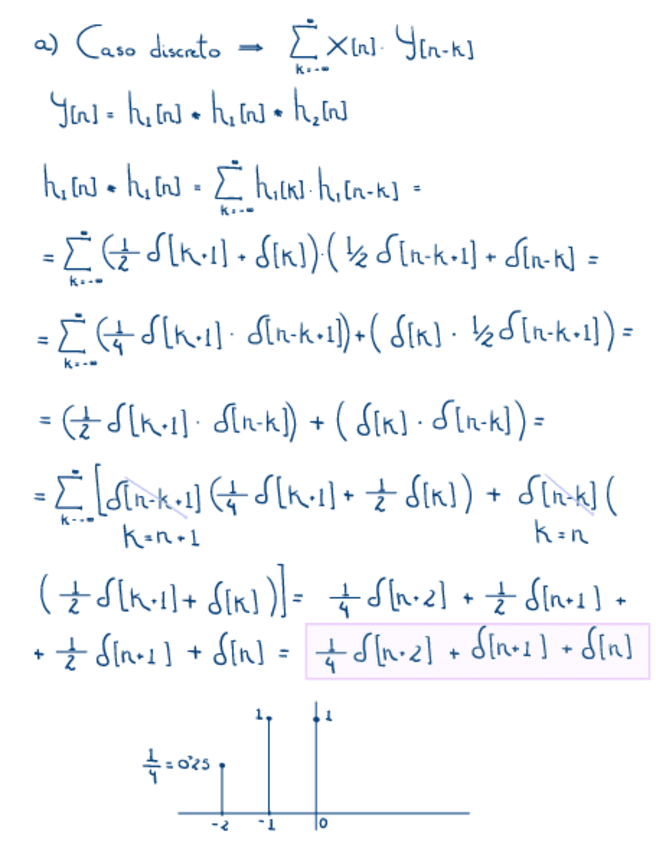 a) Caso discreto → ∑_{k=-∞}^{∞} X[n] · Y[n-k]
y[n] = h₁[n] * h₁[n] * h₂[n]
h₁[n] * h₁[n] = ∑_{k=-∞}^{∞} h₁[k] · h₁[n-k] =
= ∑_{k=-∞}^{∞} (1/2 δ[k+1] + δ[k]) · (1/2 δ[n-k+1] + δ[n-k] =
= ∑_{k=-∞}^{∞} (1/4 δ[k+1] · δ[n-k+1]) + (δ[k] · 1/2 δ[n-k+1]) =
= (1/2 δ[k+1] · δ[n-k]) + (δ[k] · δ[n-k]) =
= ∑_{k=-∞}^{∞} [δ[n-k+1] (1/4 δ[k+1] + 1/2 δ[k]) + δ[n-k] (
k=n+1 k=n
(1/2 δ[k+1] + δ[k])] = 1/4 δ[n+2] + 1/2 δ[n+1] +
+ 1/2 δ[n+1] + δ[n] = 1/4 δ[n+2] + δ[n+1] + δ[n]
1 1
1/4 = 0'25
-2 -1 0